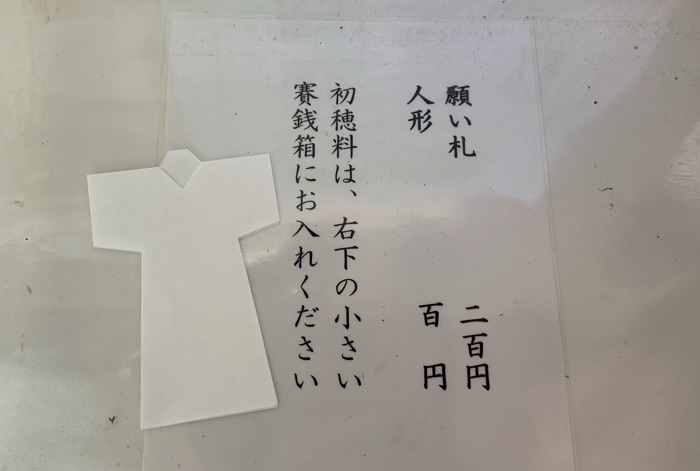 願い札　二百円
人形　百円
初穂料は、右下の小さい
賽銭箱にお入れください